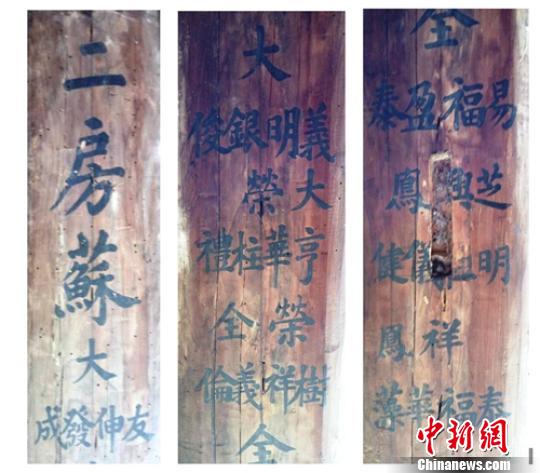 二
房
蘇
大
友伸發成
大
義明銀俊
大榮
亨華柱禮
榮全
樹祥義倫
全
全
易福盈泰
芝興鳳
明儀健
祥鳳
春福華藻
中新网
Chinanews.com